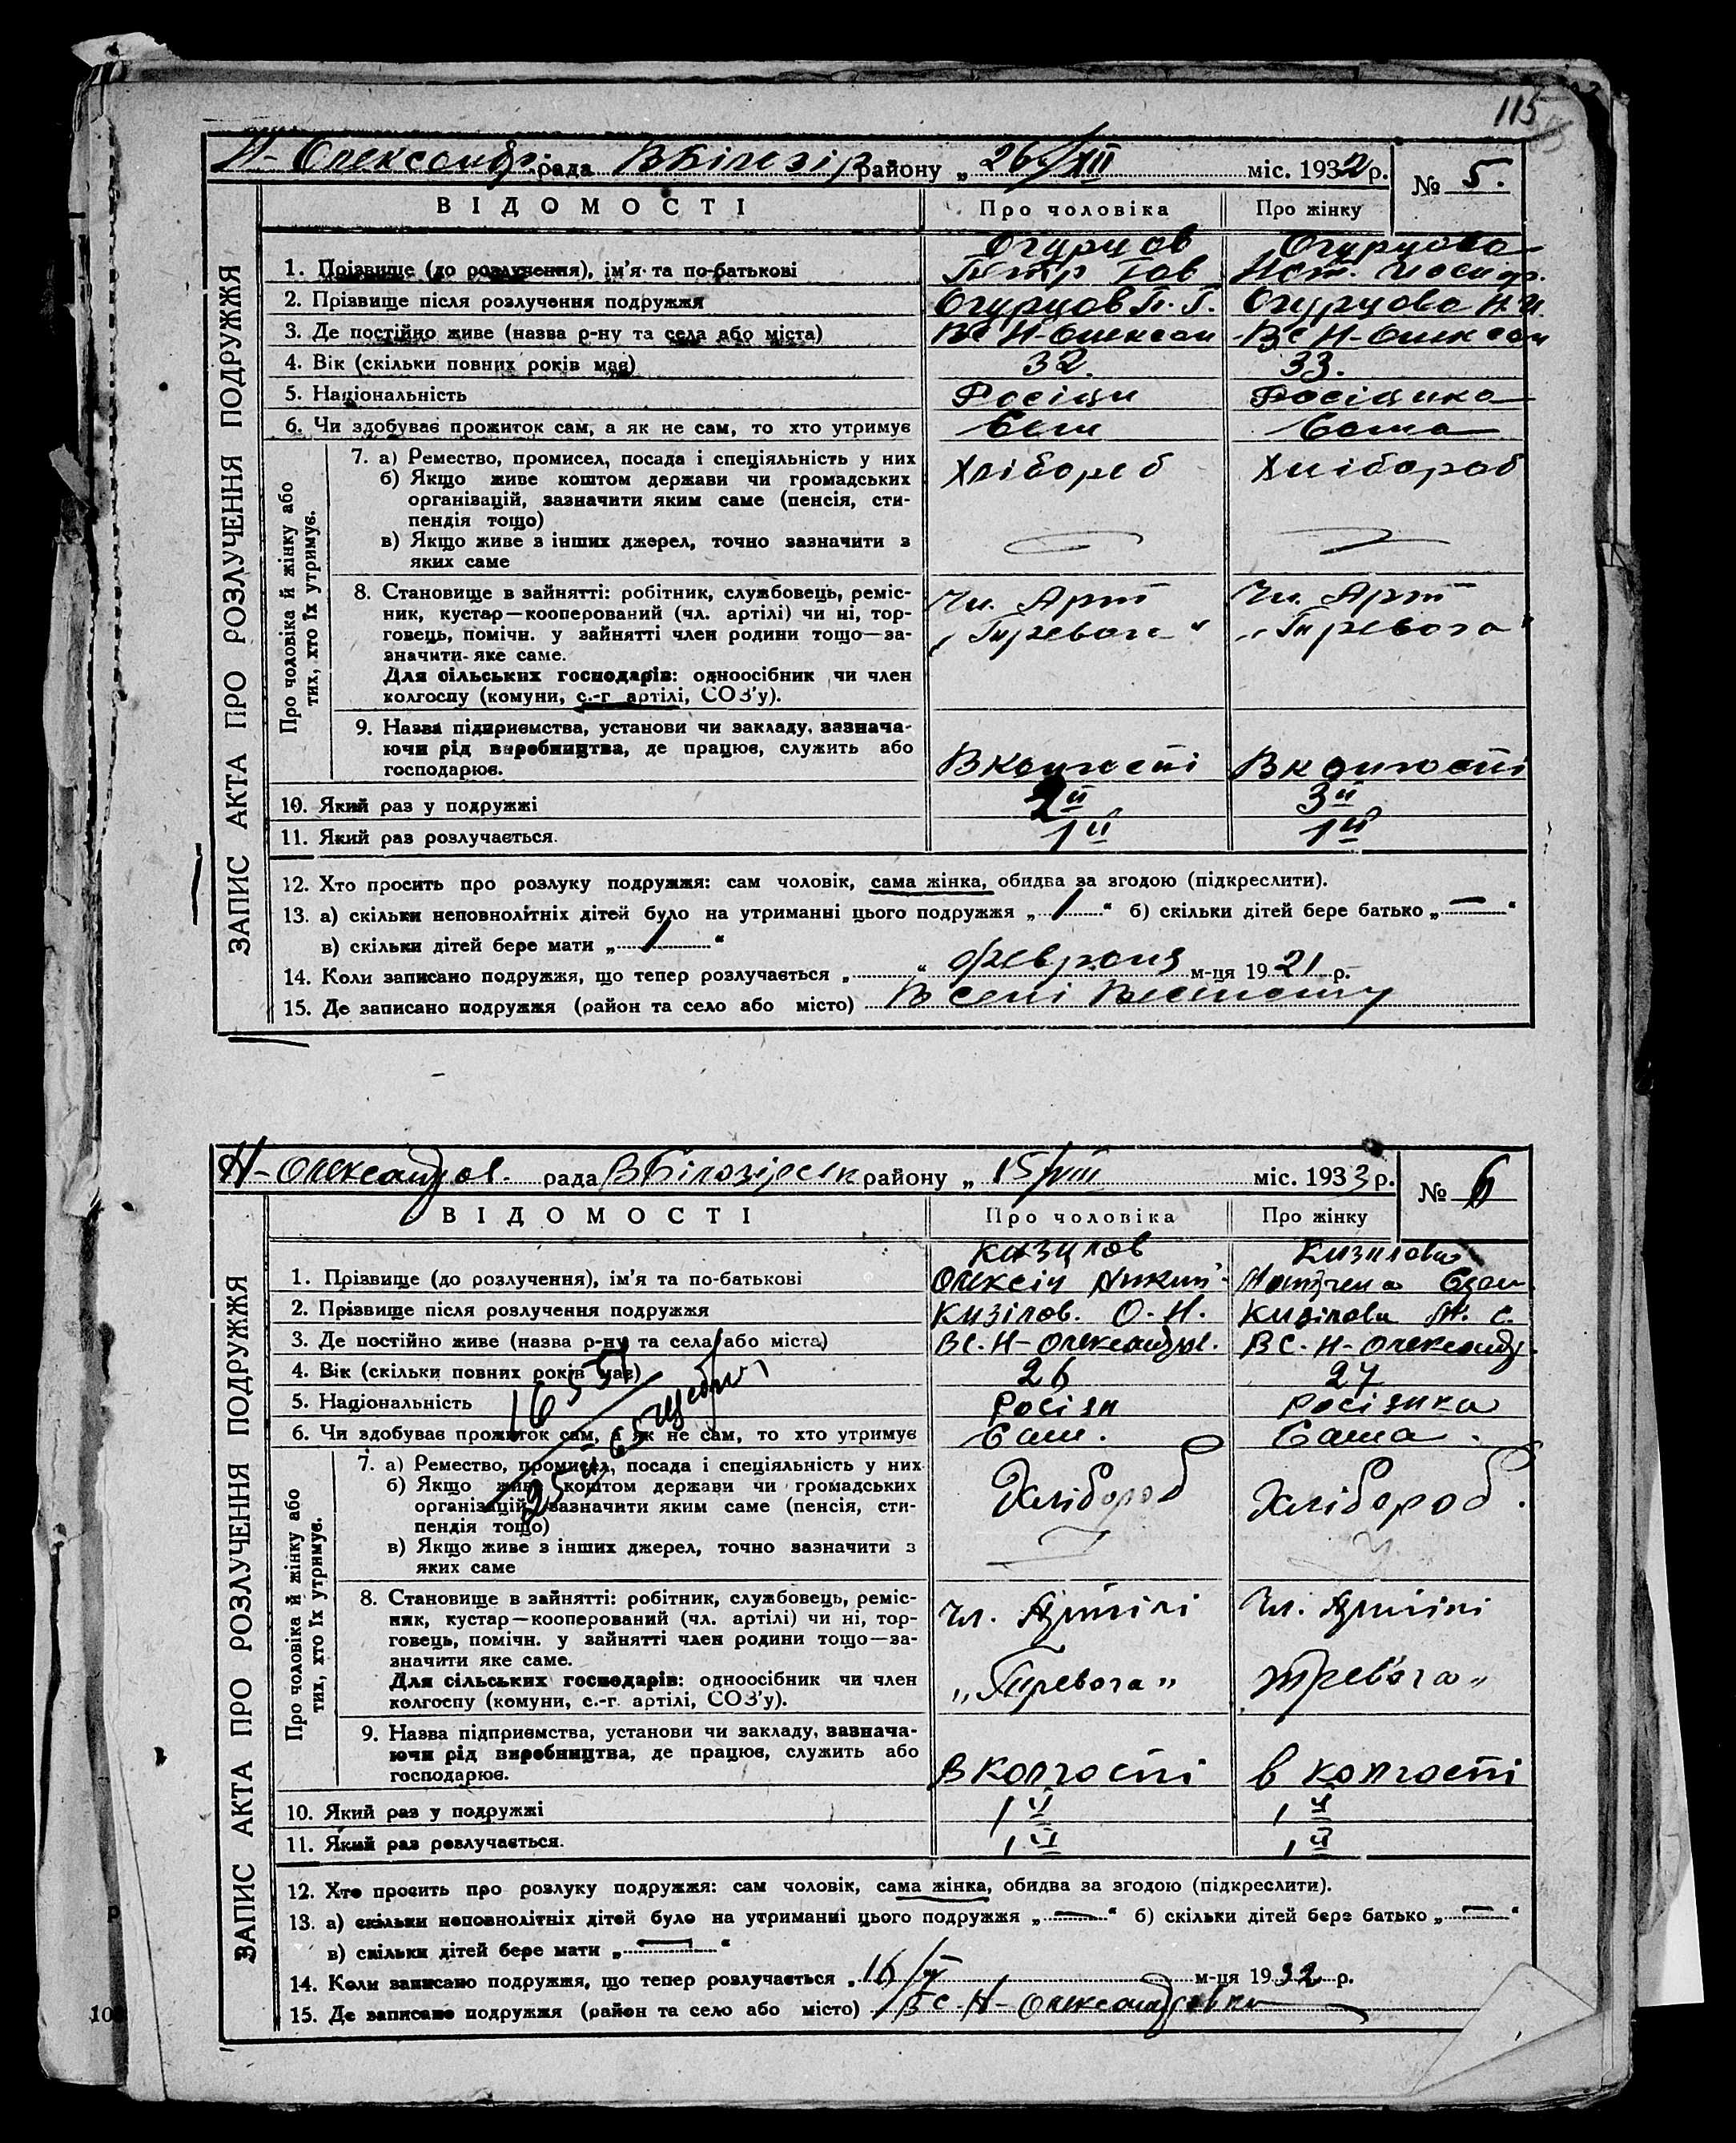 115
Н-Олександр. рада В Білозір району „ 26/XII міс. 1932 р. № 5.
ВІДОМОСТІ Про чоловіка Про жінку
ЗАПИС АКТА ПРО РОЗЛУЧЕННЯ ПОДРУЖЖЯ
Огурцов Огурцова
1. Прізвище (до розлучення), ім'я та по-батькові Петр Гав Наст. Иосиф.
2. Прізвище після розлучення подружжя Огурцов П. Г. Огурцова Н. И.
3. Де постійно живе (назва р-ну та села або міста) ВС Н-Олексан ВС Н-Олексан
4. Вік (скільки повних років має) 32. 33.
5. Національність Росіян Росіянка
6. Чи здобуває прожиток сам, а як не сам, то хто утримує Сам Сама
Про чоловіка й жінку або
тих, хто їх утримує.
7. а) Ремество, промисел, посада і спеціяльність у них Хлібороб Хлібороб
б) Якщо живе коштом держави чи громадських
організацій, зазначити яким саме (пенсія, сти-
пендія тощо)
в) Якщо живе з інших джерел, точно зазначити з
яких саме
8. Становище в зайнятті: робітник, службовець, реміс- Чл. Арт Чл. Арт
ник, кустар—кооперований (чл. артілі) чи ні, тор-
говець, помічн. у зайнятті член родини тощо—за- „Тревога“ „Тревога“
значити яке саме.
Для сільських господарів: одноосібник чи член
колгоспу (комуни, с.-г артілі, СОЗ'у).
9. Назва підприємства, установи чи закладу, зазнача-
ючи рід виробництва, де працює, служить або
господарює. В колгоспі В колгоспі
10. Який раз у подружжі 2й 3й
11. Який раз розлучається. 1й 1й
12. Хто просить про розлуку подружжя: сам чоловік, сама жінка, обидва за згодою (підкреслити).
13. а) скільки неповнолітніх дітей було на утриманні цього подружжя „ 1 “ б) скільки дітей бере батько „ — “
в) скільки дітей бере мати „ 1 “
14. Коли записано подружжя, що тепер розлучається „ “ Февроля м-ця 19 21 р.
15. Де записано подружжя (район та село або місто) В селі
Н-Олександров. рада В Білозірськ району „ 15/VIII міс. 1933 р. № 6
ВІДОМОСТІ Про чоловіка Про жінку
ЗАПИС АКТА ПРО РОЗЛУЧЕННЯ ПОДРУЖЖЯ
Кизилов Кизилова
1. Прізвище (до розлучення), ім'я та по-батькові Олексій Никит.
2. Прізвище після розлучення подружжя Кизілов. О. Н. Кизілова М. С.
3. Де постійно живе (назва р-ну та села або міста) ВС. Н-Олександров. ВС. Н-Олександр.
4. Вік (скільки повних років має) 26 27
5. Національність Росіян Росіянка
6. Чи здобуває прожиток сам, а як не сам, то хто утримує Сам. Сама.
Про чоловіка й жінку або
тих, хто їх утримує.
7. а) Ремество, промисел, посада і спеціяльність у них Хлібороб Хлібороб.
б) Якщо живе коштом держави чи громадських
організацій, зазначити яким саме (пенсія, сти-
пендія тощо)
в) Якщо живе з інших джерел, точно зазначити з
яких саме
8. Становище в зайнятті: робітник, службовець, реміс- Чл. Артілі Чл. Артілі
ник, кустар—кооперований (чл. артілі) чи ні, тор-
говець, помічн. у зайнятті член родини тощо—за-
значити яке саме.
Для сільських господарів: одноосібник чи член „Тревога“ Тревога“
колгоспу (комуни, с.-г. артілі, СОЗ'у).
9. Назва підприємства, установи чи закладу, зазнача-
ючи рід виробництва, де працює, служить або
господарює. В колгоспі в колгоспі
10. Який раз у подружжі 1й 1й
11. Який раз розлучається. 1й 1й
12. Хто просить про розлуку подружжя: сам чоловік, сама жінка, обидва за згодою (підкреслити).
13. а) скільки неповнолітніх дітей було на утриманні цього подружжя „ — “ б) скільки дітей бере батько „ — “
в) скільки дітей бере мати „ — “
14. Коли записано подружжя, що тепер розлучається „ м-ця 19 32 р.
15. Де записано подружжя (район та село або місто) ВС. Н-Олександровка